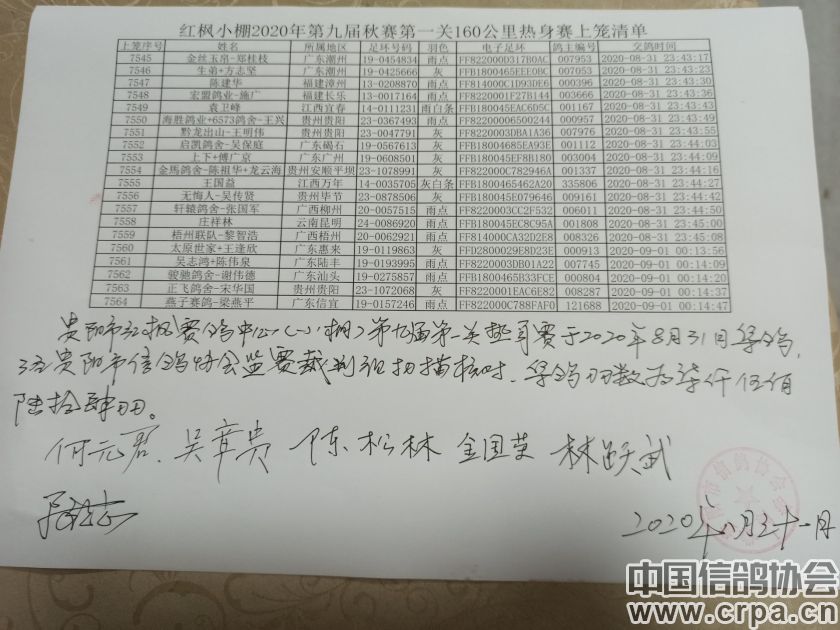 红枫小棚2020年第九届秋赛第一关160公里热身赛上笼清单
上笼序号 姓名 所属地区 足环号码 羽色 电子足环 鸽主编号 交鸽时间
7545 金丝玉帛-郑桂枝 广东潮州 19-0454834 雨点 FF822000D317B0AC 007953 2020-08-31 23:43:17
7546 生弟+方志坚 广东潮州 19-0425666 灰 FFB1800465EEE0BC 007053 2020-08-31 23:43:23
7547 陈建华 福建漳州 13-0208870 雨点 FF814000C1D93DE6 000396 2020-08-31 23:43:30
7548 宏盟鸽业-施广 福建长乐 13-0017164 雨点 FF8220001F27B144 003666 2020-08-31 23:43:36
7549 袁卫峰 江西宜春 14-0111231 雨白条 FFB180045EAC6D5C 001167 2020-08-31 23:43:43
7550 海胜鸽业+6573鸽舍-王兴 贵州贵阳 23-0367493 雨点 FF82200006500244 000957 2020-08-31 23:43:49
7551 黔龙出山-王明伟 贵州贵阳 23-0047791 灰 FF8220003DBA1A36 007976 2020-08-31 23:43:55
7552 启凯鸽舍-吴保庭 广东碣石 19-0567613 灰 FFB18004685EA93E 001112 2020-08-31 23:44:03
7553 上下+傅广京 广东广州 19-0608501 灰 FFB180045EF8B180 003004 2020-08-31 23:44:09
7554 金馬鸽舍-陈祖华+龙云海 贵州安顺平坝 23-1078991 灰 FF822000C782946A 001337 2020-08-31 23:44:16
7555 王国益 江西万年 14-0035705 灰白条 FFB1800465462A20 335806 2020-08-31 23:44:27
7556 无悔人-吴传贤 贵州毕节 23-0878506 灰 FFB180045E079646 009161 2020-08-31 23:44:42
7557 轩辕鸽舍-张国军 广西柳州 20-0057515 雨点 FF8220003CC2F532 006011 2020-08-31 23:44:50
7558 庄祥林 云南昆明 24-0086920 雨点 FFB180045EC8C95A 001808 2020-08-31 23:45:00
7559 梧州联队-黎智浩 广西梧州 20-0062921 雨点 FF814000CA32D2E8 008326 2020-08-31 23:45:08
7560 太原世家+王逢欣 广东惠来 19-0119863 灰 FFD2800029E8D23E 000913 2020-09-01 00:13:56
7561 吴志鸿+陈伟泉 广东陆丰 19-0193995 雨点 FF8220003DB01A22 007745 2020-09-01 00:14:09
7562 骏驰鸽舍-谢伟德 广东汕头 19-0275857 雨点 FFB1800465B33FCE 000810 2020-09-01 00:14:20
7563 正飞鸽舍-宋华国 贵州贵阳 23-1072068 灰 FF8220001EAC6E82 008287 2020-09-01 00:14:37
7564 燕子赛鸽-梁燕平 广东信宜 19-0157246 雨点 FF822000C788FAF0 121688 2020-09-01 00:14:47
贵阳市红枫赛鸽中心(小棚)第九届第一关热身赛于2020年8月31日集鸽,
经贵阳市信鸽协会监赛裁判组扫描核对,集鸽羽数为柒仟伍佰
陆拾肆羽。
何元君 吴章贵 陈松林 金国华 林跃武
2020年八月三十一日
市信鸽协会
中国信鸽协会
www.crpa.cn